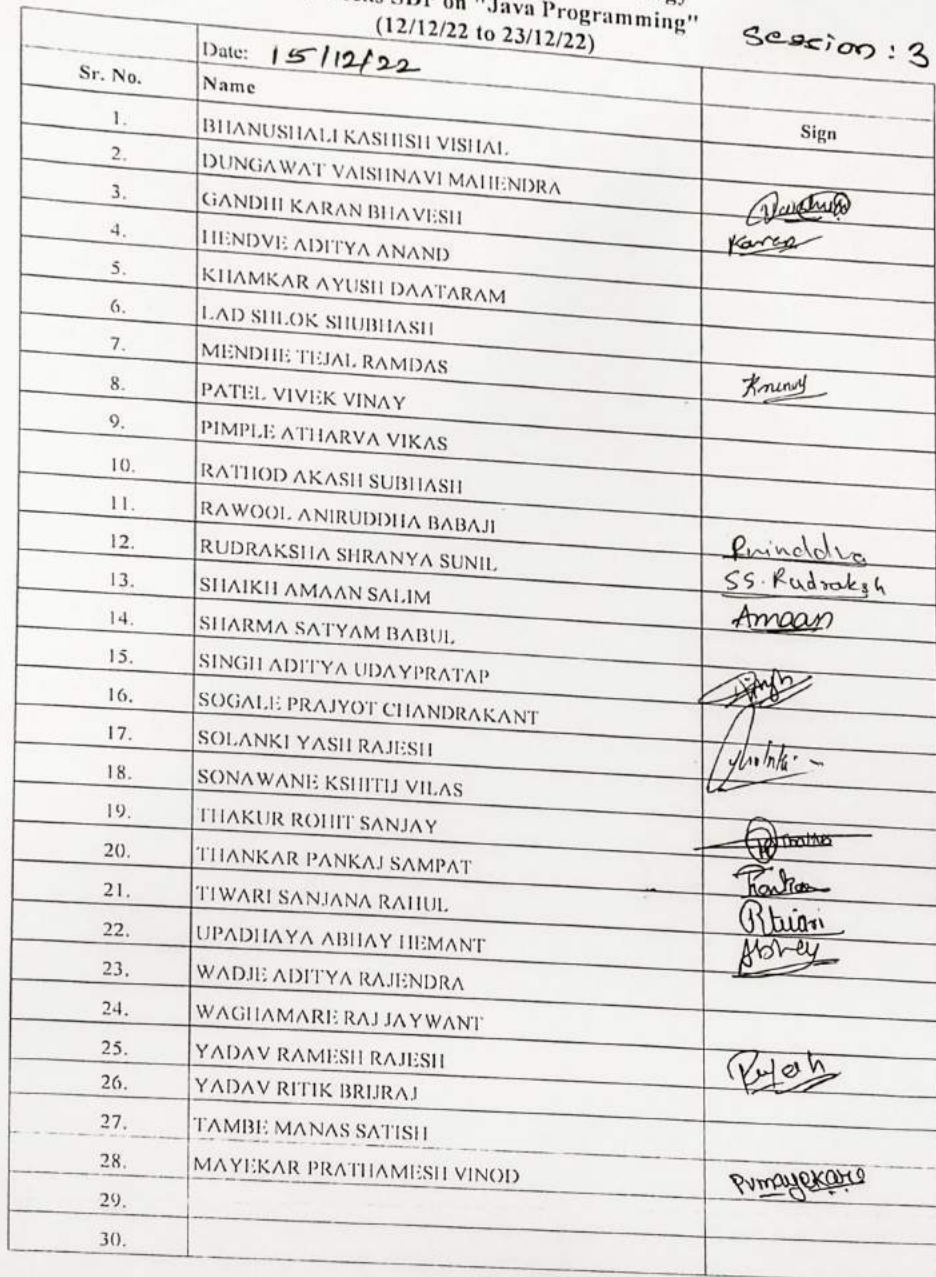 SDP on "Java Programming"
(12/12/22 to 23/12/22)
Session : 3
Date: 15/12/22
Sr. No. Name Sign
1. BHANUSHALI KASHISH VISHAL
2. DUNGAWAT VAISHNAVI MAHENDRA
3. GANDHI KARAN BHAVESH Karan
4. HENDVE ADITYA ANAND
5. KHAMKAR AYUSH DAATARAM
6. LAD SHLOK SHUBHASH
7. MENDHE TEJAL RAMDAS
8. PATEL VIVEK VINAY
9. PIMPLE ATHARVA VIKAS
10. RATHOD AKASH SUBHASH
11. RAWOOL ANIRUDDHA BABAJI
12. RUDRAKSHA SHRANYA SUNIL SS. Rudraksh
13. SHAIKH AMAAN SALIM Amaan
14. SHARMA SATYAM BABUL
15. SINGH ADITYA UDAYPRATAP Singh
16. SOGALE PRAJYOT CHANDRAKANT
17. SOLANKI YASH RAJESH
18. SONAWANE KSHITIJ VILAS
19. THAKUR ROHIT SANJAY
20. THANKAR PANKAJ SAMPAT
21. TIWARI SANJANA RAHUL
22. UPADHAYA ABHAY HEMANT Abhay
23. WADJE ADITYA RAJENDRA
24. WAGHAMARE RAJ JAYWANT
25. YADAV RAMESH RAJESH
26. YADAV RITIK BRIJRAJ
27. TAMBE MANAS SATISH
28. MAYEKAR PRATHAMESH VINOD Pvmayekare
29.
30.